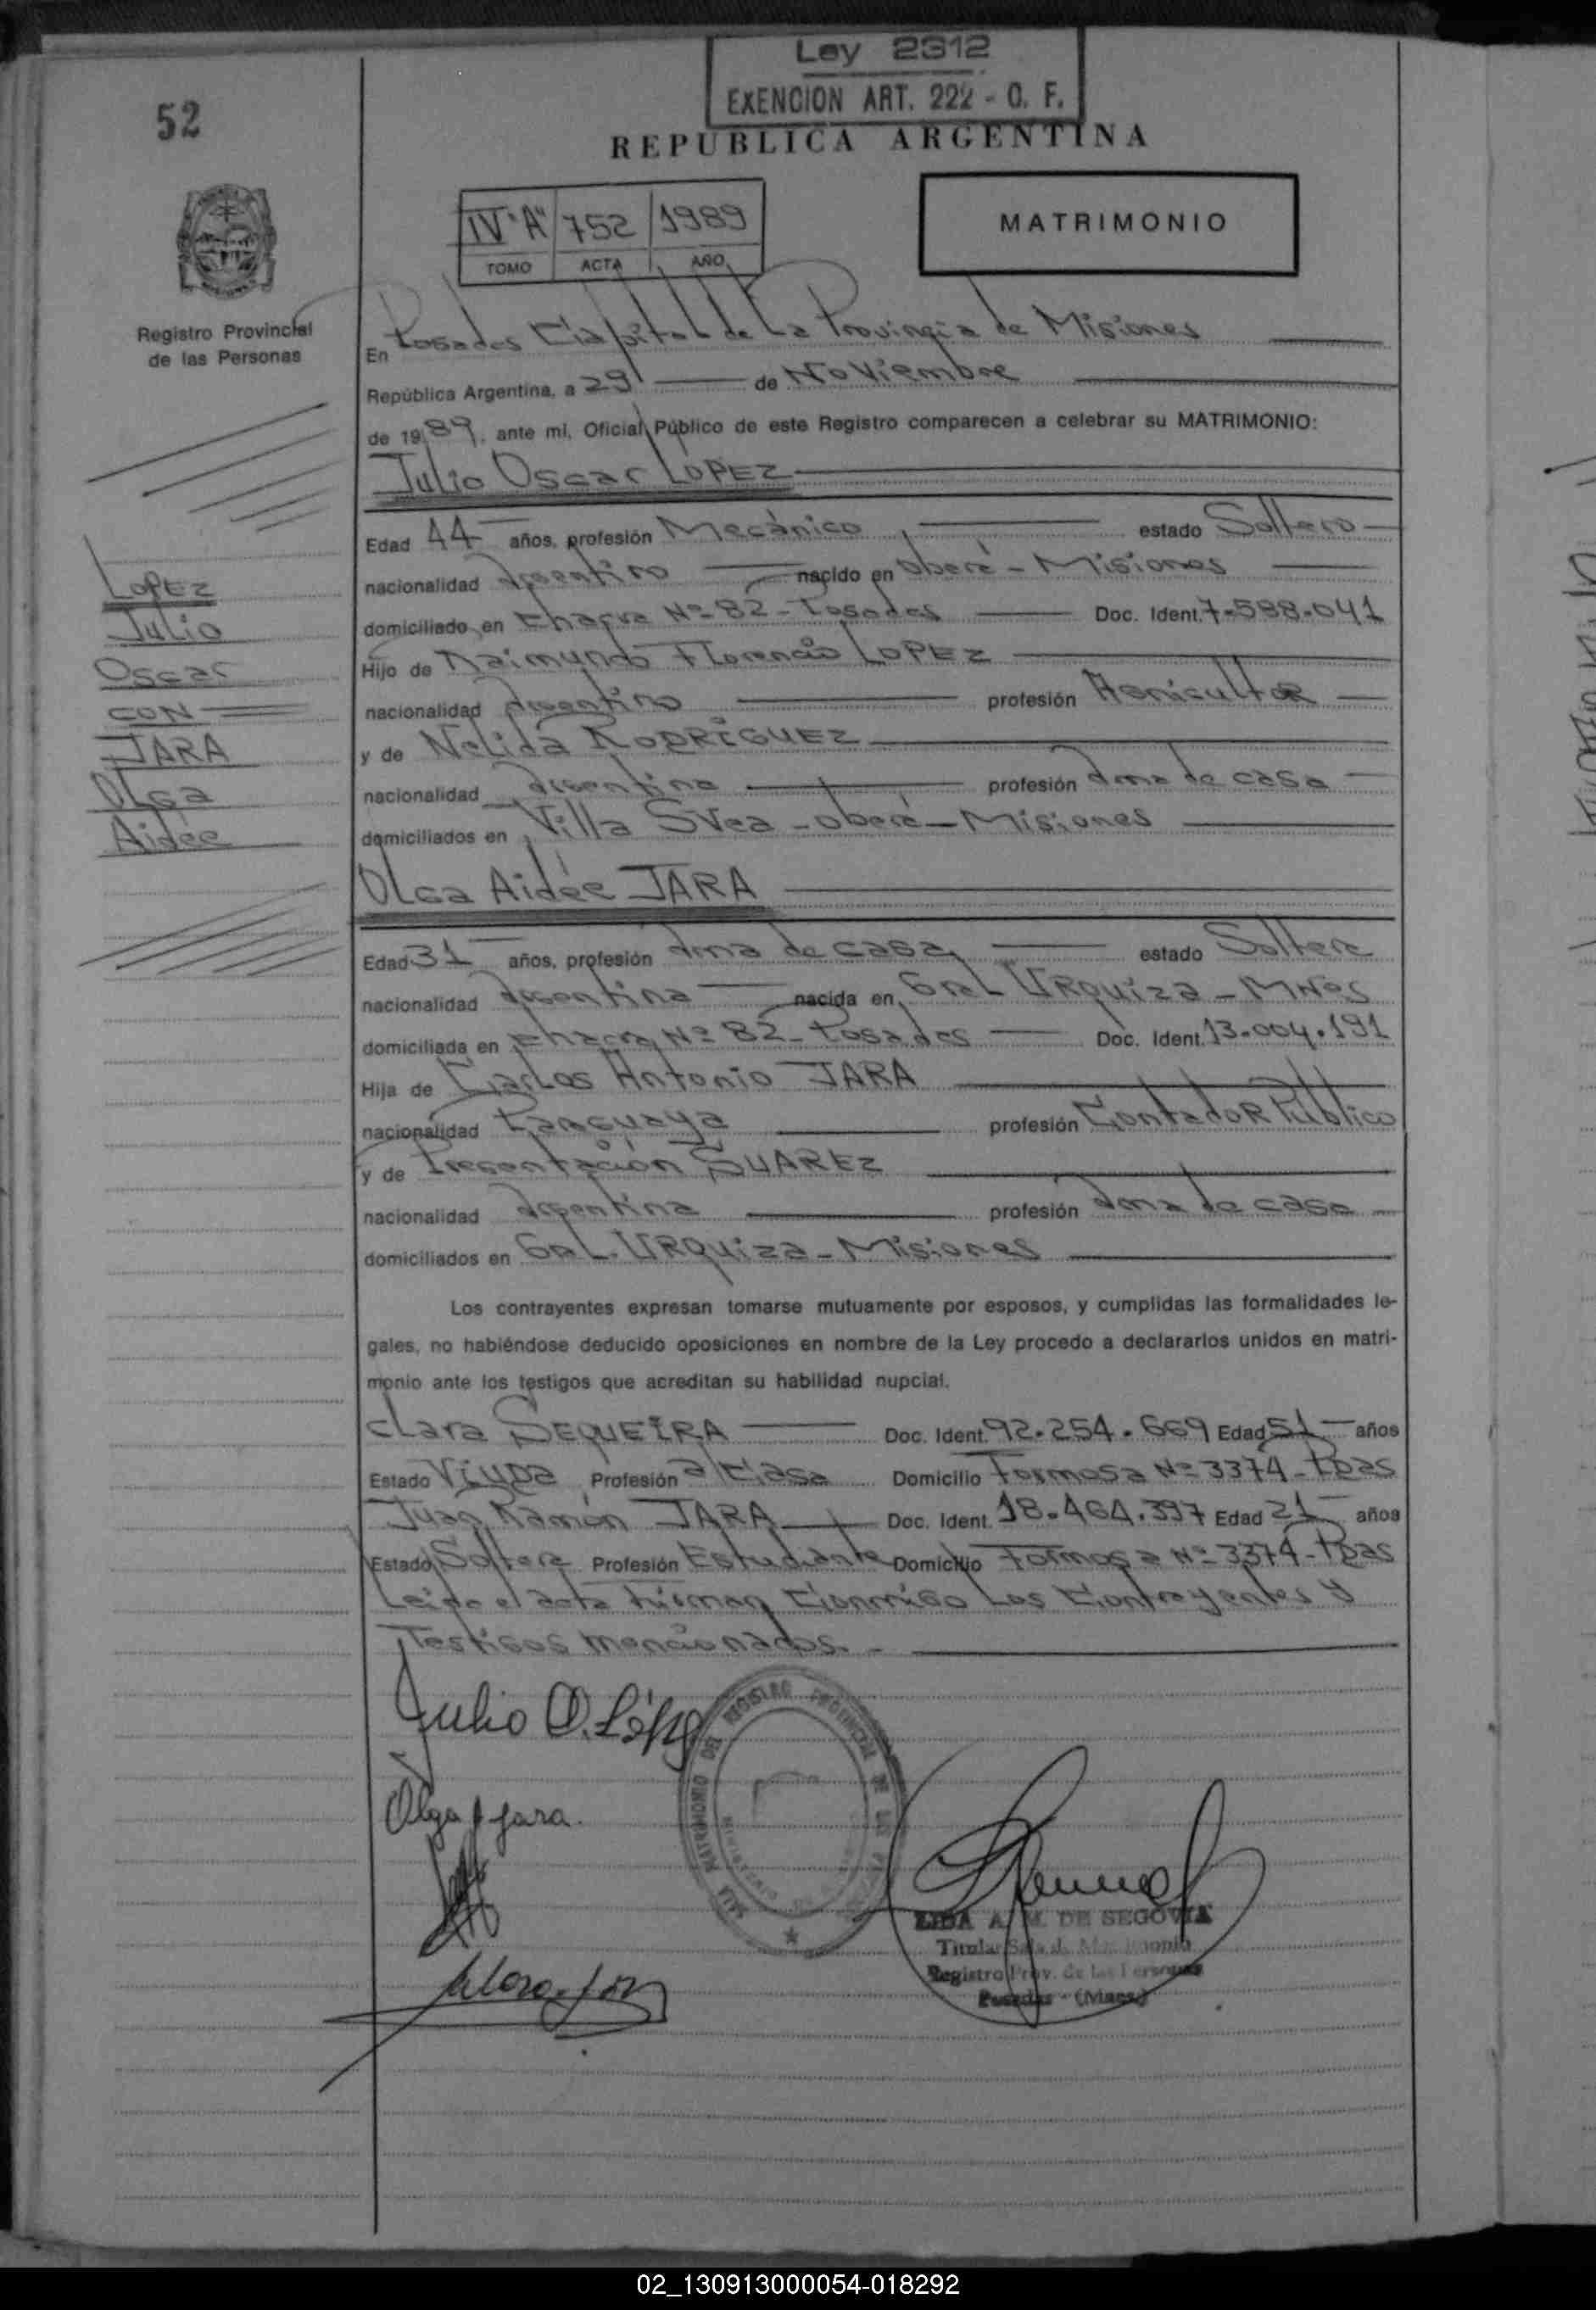 Ley 2312
EXENCION ART. 222 - O. F.
52
REPUBLICA ARGENTINA
IV "A" 752 1989
TOMO ACTA AÑO
MATRIMONIO
Registro Provincial
de las Personas
En Posadas Capital de La Provincia de Misiones
República Argentina, a 29 de Noviembre
de 1989, ante mí, Oficial Público de este Registro comparecen a celebrar su MATRIMONIO:
Julio Oscar LOPEZ
Edad 44 años, profesión Mecánico estado Soltero
nacionalidad Argentino nacido en Oberá - Misiones
domiciliado en Chacra Nº 82 - Posadas Doc. Ident. 7.588.041
Hijo de Raimundo Florencio LOPEZ
nacionalidad Argentino profesión Agricultor
y de Nelida RODRIGUEZ
nacionalidad Argentina profesión Ama de casa
domiciliados en Villa Svea - Oberá - Misiones
LOPEZ
Julio
Oscar
CON
JARA
Olga
Aidée
Olga Aidée JARA
Edad 31 años, profesión Ama de casa estado Soltera
nacionalidad Argentina nacida en Gral Urquiza - Mnes
domiciliada en Chacra Nº 82 - Posadas Doc. Ident. 13.004.191
Hija de Carlos Antonio JARA
nacionalidad Paraguaya profesión Contador Público
y de Presentación SUAREZ
nacionalidad Argentina profesión Ama de casa
domiciliados en Gral. Urquiza - Misiones
Los contrayentes expresan tomarse mutuamente por esposos, y cumplidas las formalidades le-
gales, no habiéndose deducido oposiciones en nombre de la Ley procedo a declararlos unidos en matri-
monio ante los testigos que acreditan su habilidad nupcial.
Clara SEQUEIRA Doc. Ident. 92.254.669 Edad 51 años
Estado Viuda Profesión a/Casa Domicilio Formosa Nº 3374 - Pdas
Juan Ramón JARA Doc. Ident. 18.464.397 Edad 21 años
Estado Soltero Profesión Estudiante Domicilio Formosa Nº 3374 - Pdas
Leido el acta firman Conmigo Los Contrayentes y
Testigos mencionados.-
Julio O. López
Olga A Jara.
SALA MATRIMONIO DEL REGISTRO PROVINCIAL DE LAS
LIDA A. M. DE SEGOVIA
Titular Sala de Matrimonio
Registro Prov. de las Personas
Posadas - (Mnes.)
02_130913000054-018292